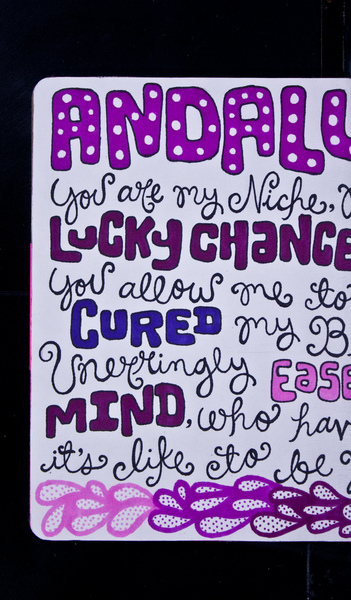 ANDALU
You are my Niche,
LUCKY CHANCE
You allow me to
CURED my B
Unerringly EASE
MIND, who hav
it's like to be